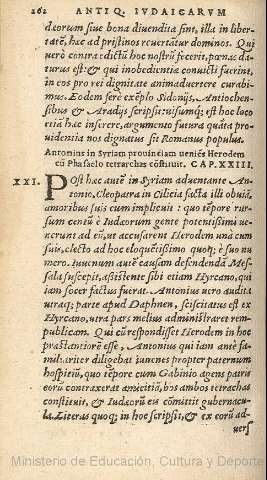 262 ANTIQ. IVDAICARVM
deorum siue bona diuendita sint, illa in liber-
tatē, hæc ad pristinos reuertātur dominos. Qui
verò contra edictū hoc nostrū fecerit, pœnas da-
turus est: & qui inobedientia conuicti fuerint,
in eos pro rei dignitate animaduertere curabi-
mus. Eodem ferè exēplo Sidonijs, Antiochen-
sibus & Aradijs scripsit: visumq; est hoc loco
iccō hæc inserere, argumento futura quāta pro-
uidentia nos dignatus sit Romanus populus.
Antonius in Syriam prouinciam ueniēs Herodem
cū Phaselo tetrarchas cōstituit. CAP. XXIII.
XXI. Post hæc autē in Syriam aduentante An-
tonio, Cleopatra in Cilicia facta illi obuiā,
amoribus suis cum implicuit: quo tēpore rur-
sum centū è Iudæorum gente potentissimi ue-
nerunt ad eū, ut accusarent Herodem unà cum
suis, electo ad hoc eloquētissimo quoq; è suo nu
mero. iuuenum autē causam defendenda Mes-
sala suscepit, assistente sibi etiam Hyrcano, qui
iam socer factus fuerat. Antonius uero audita
utraq; parte apud Daphnen, sciscitatus est ex
Hyrcano, utra pars melius administraret rem-
publicam. Qui cū respondisset Herodem in hoc
præstantiorē esse, Antonius qui iam ante fa-
miliariter diligebat iuuenes propter paternum
hospitiū, quo tēpore cum Gabinio agens patri
eorū contraxerat amicitiā, bos ambos tetrachas
constituit, & Iudæorū eis cōmittit gubernacu-
la. Literas quoq; in hoc scripsit, & ex eorū ad-
uers
Ministerio de Educación, Cultura y Deporte